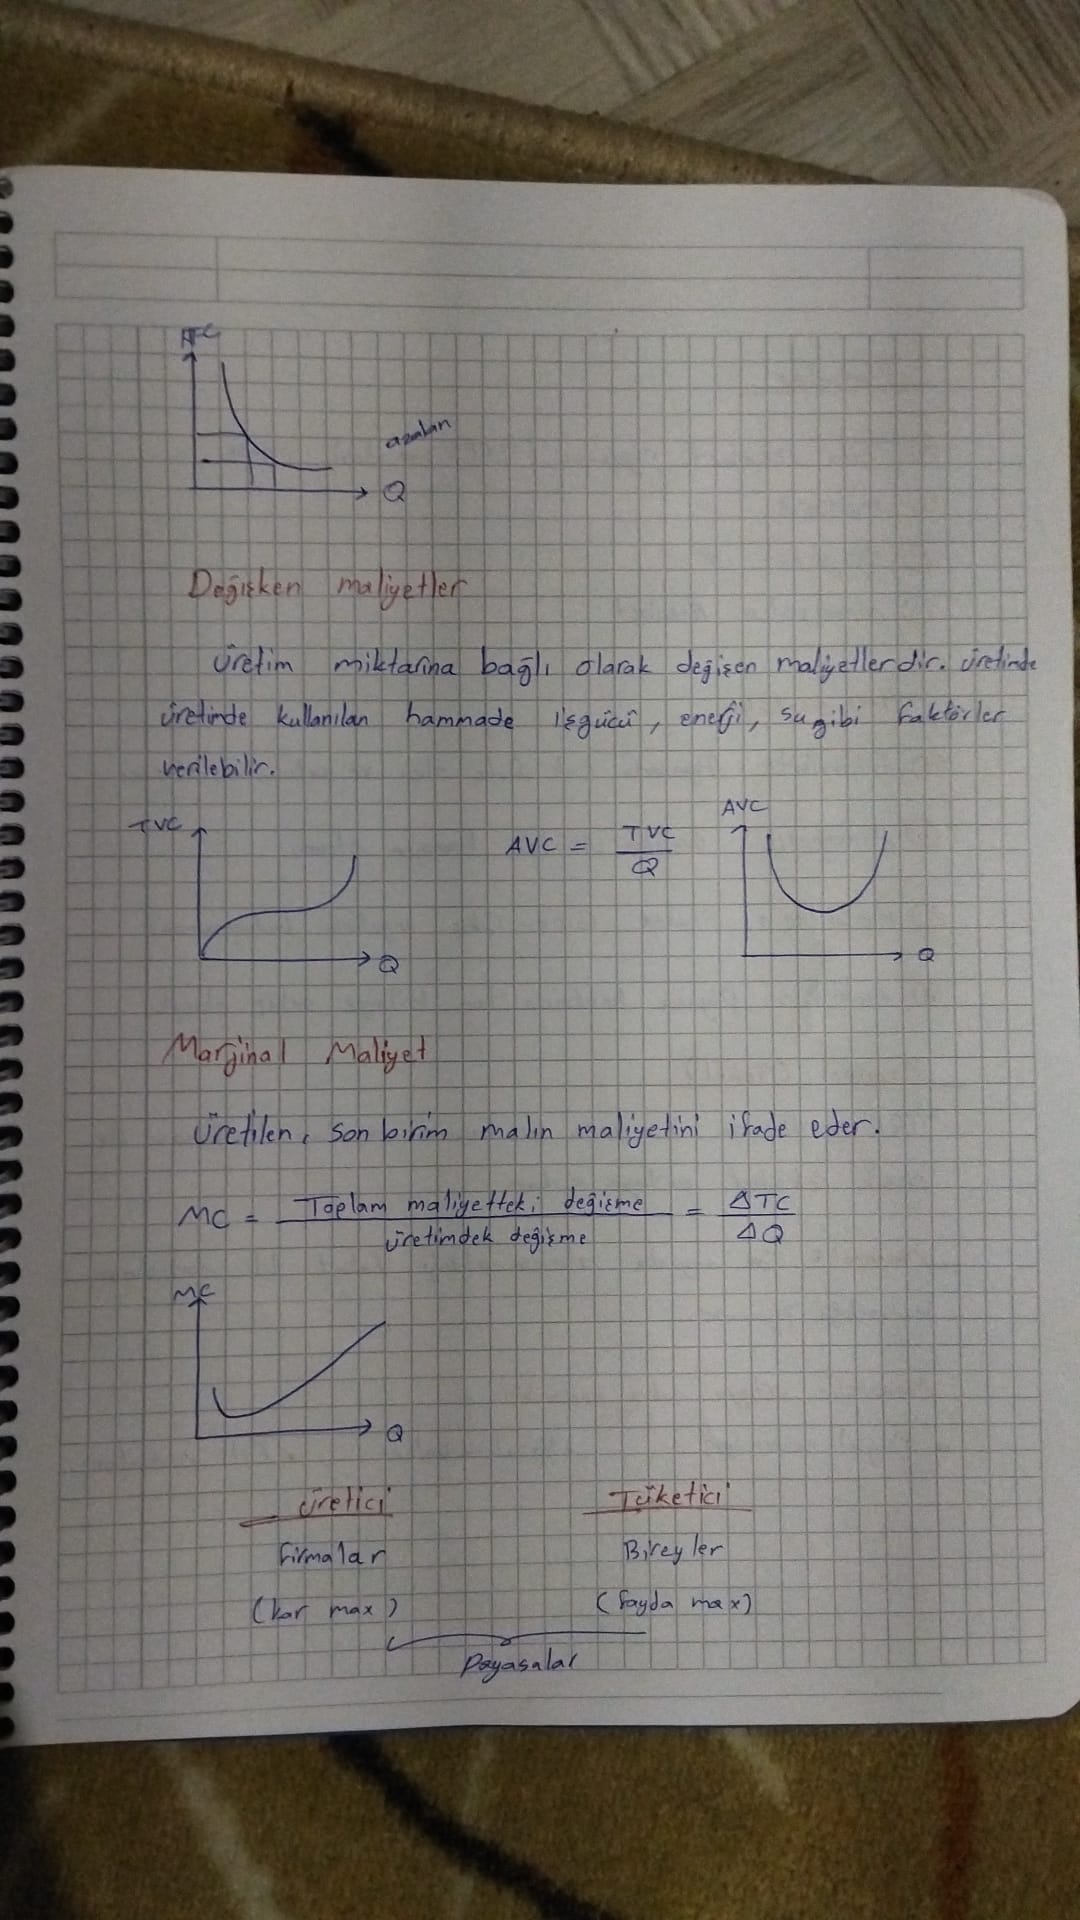 AFC
azalan
Q
Değişken maliyetler
üretim miktarına bağlı olarak değişen maliyetlerdir. üretimde
üretimde kullanılan hammade işgücü, enerji, su gibi faktörler
verilebilir.
TVC
Q
AVC = TVC / Q
AVC
Q
Marjinal Maliyet
üretilen, son birim malın maliyetini ifade eder.
MC = Toplam maliyetteki değişme / üretimdek değişme = ΔTC / ΔQ
MC
Q
üretici Tüketici
firmalar Bireyler
(kar max) (fayda max)
Payasalar